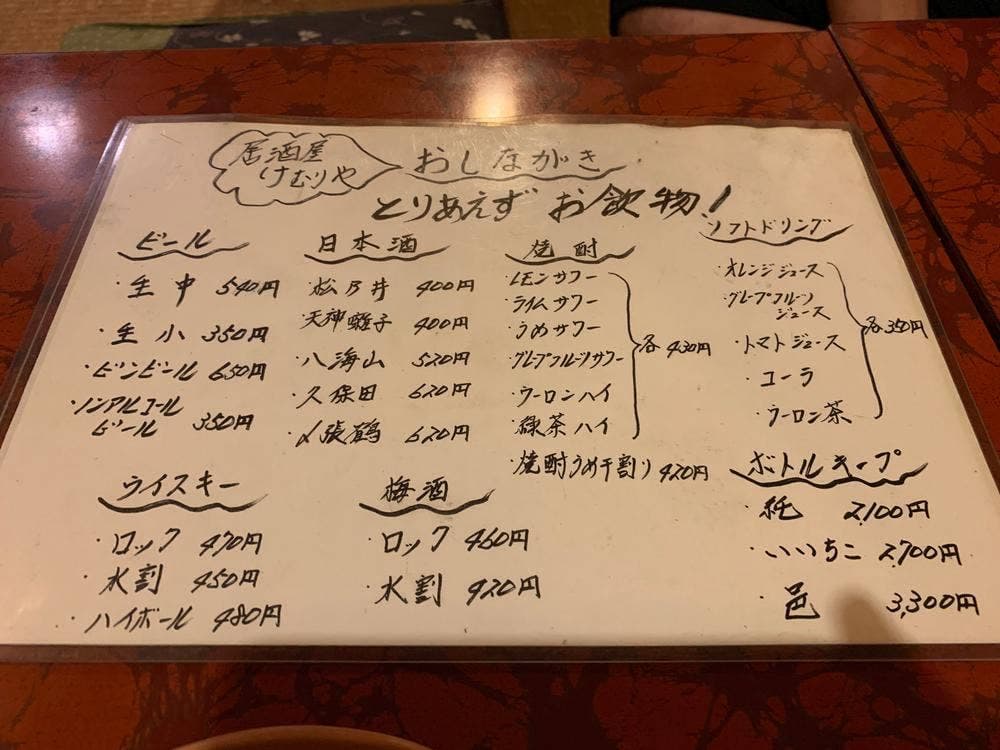 居酒屋
けむりや
おしながき
とりあえず お飲物!
ビール
・生中 540円
・生小 350円
・ビンビール 650円
・ノンアルコール
ビール 350円
日本酒
・松乃井 400円
・天神囃子 400円
・八海山 520円
・久保田 620円
・〆張鶴 620円
焼酎
・レモンサワー
・ライムサワー
・うめサワー
・グレープフルーツサワー
・ウーロンハイ
・緑茶ハイ
各430円
・焼酎うめ干割り 420円
ソフトドリング
・オレンジジュース
・グレープフルーツ
ジュース
・トマトジュース
・コーラ
・ウーロン茶
各350円
ウイスキー
・ロック 470円
・水割 450円
・ハイボール 480円
梅酒
・ロック 460円
・水割 420円
ボトルキープ
・純 2,100円
・いいちこ 2,700円
・邑 3,300円